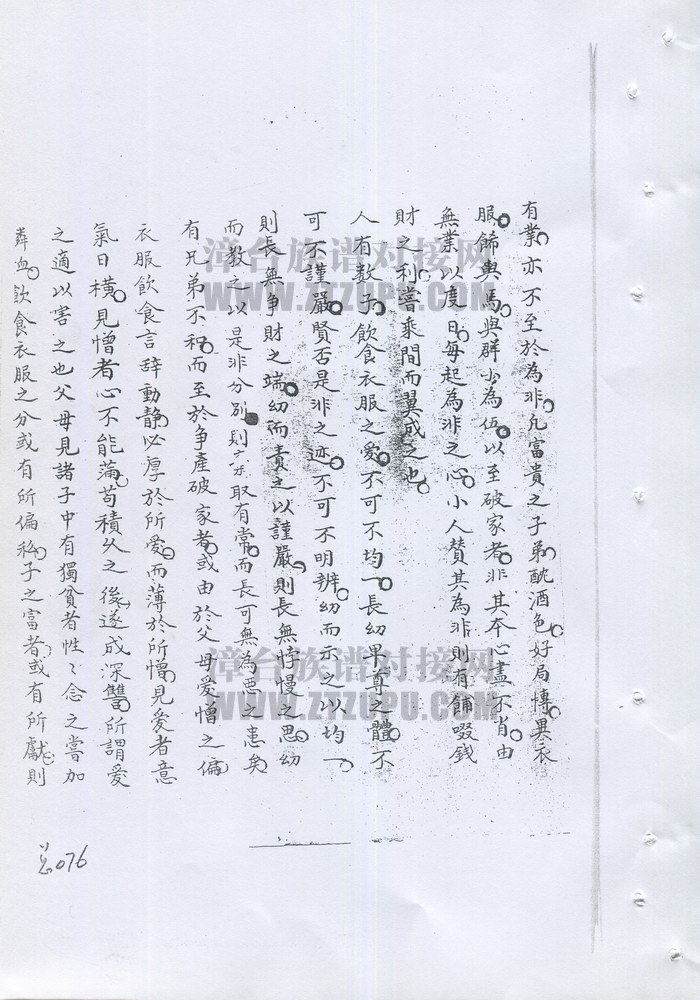 有業亦不至於為非凡富貴之子弟酖酒色好局博異衣
服餙輿馬與群小為伍以至破家者非其夲心盡不肖由
無業以度日每起為非之心小人賛其為非則有餔啜錢
財之利嘗乘間而翼成之也
人有数子飲食衣服之愛不可不均一長幼畢尊之體不
可不謹嚴賢否是非之迹不可不明辨幼而示之以均一
則長無争財之端幼而責之以謹嚴則長無悖慢之思幼
而教之以是非分别則亦取有常而長可無為惡之患矣
有兄弟不和而至於争產破家者或由於父母愛憎之偏
衣服飲食言辞動静必厚於所愛而薄於所憎見愛者意
氣日橫見憎者心不能滿苟積久之後遂成深讐所謂愛
之適以害之也父母見諸子中有獨貧者性〻念之嘗加
粦血飲食衣服之分或有所偏私子之富者或有所獻則
总076
漳台族谱对接网
WWW.ZTZUPU.COM
漳台族谱对接网
WWW.ZTZUPU.COM